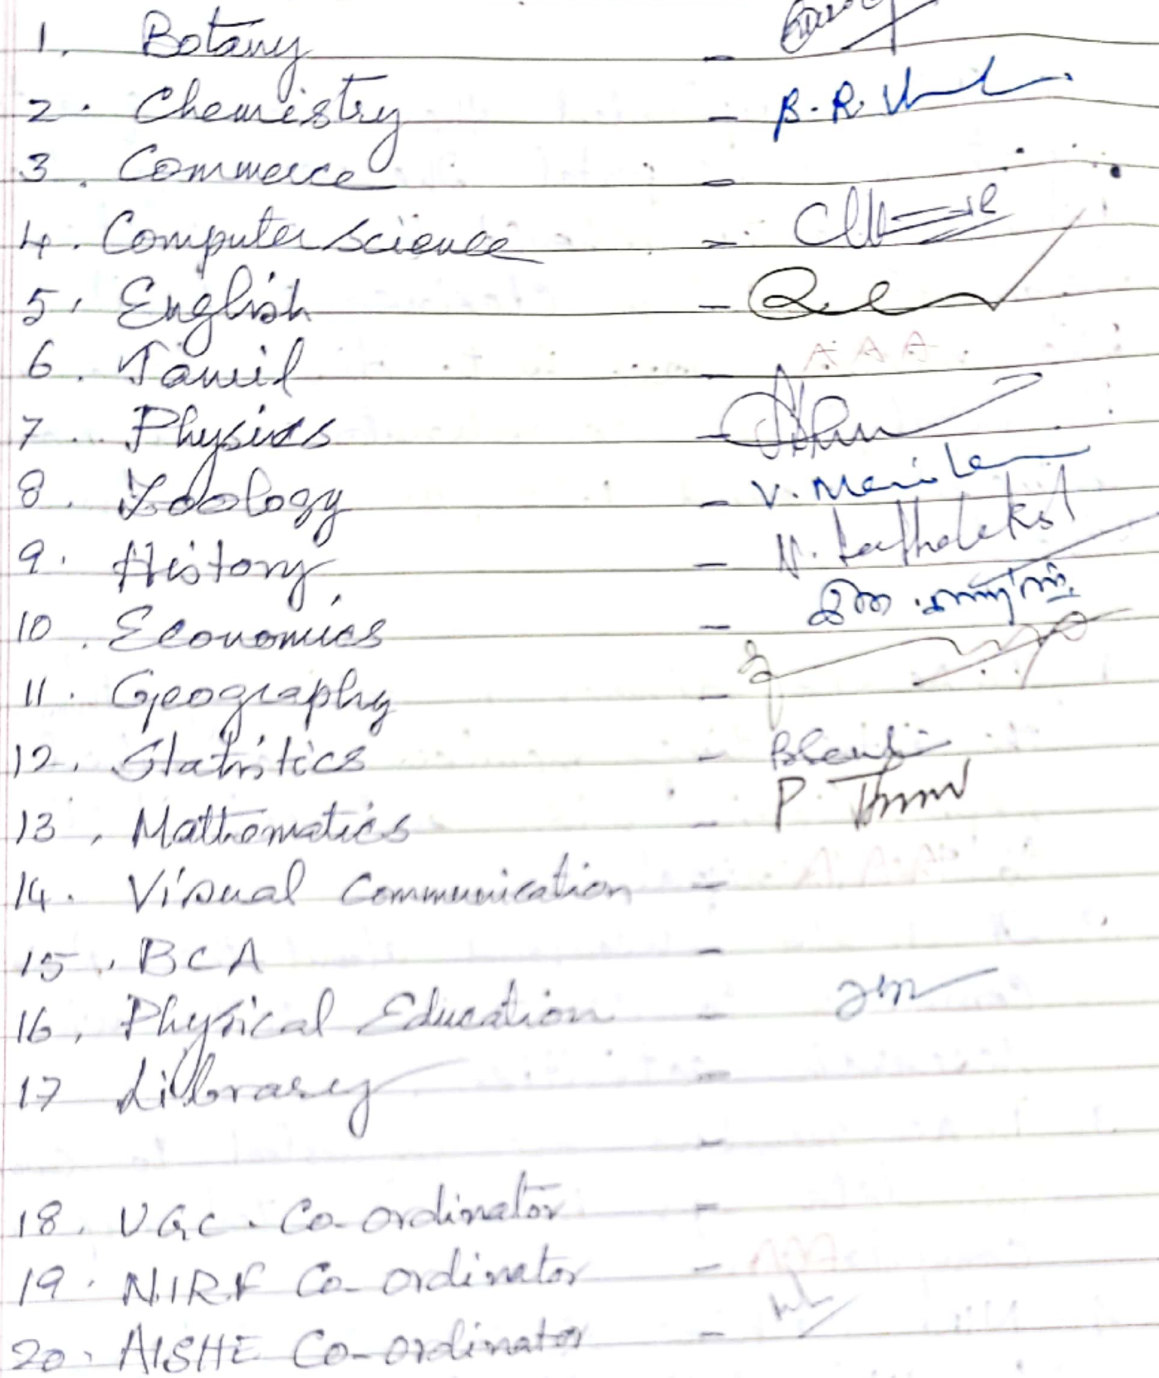 1. Botany -
2. Chemistry - B.R.
3. Commerce -
4. Computer Science -
5. English -
6. Tamil -
7. Physics -
8. Zoology - V.
9. History - N.
10. Economics -
11. Geography -
12. Statistics -
13. Mathematics - P.
14. Visual Communication -
15. BCA -
16. Physical Education -
17 Library -
-
18. UGC. Co-ordinator -
19. NIRF Co-ordinator -
20. AISHE Co-ordinator -